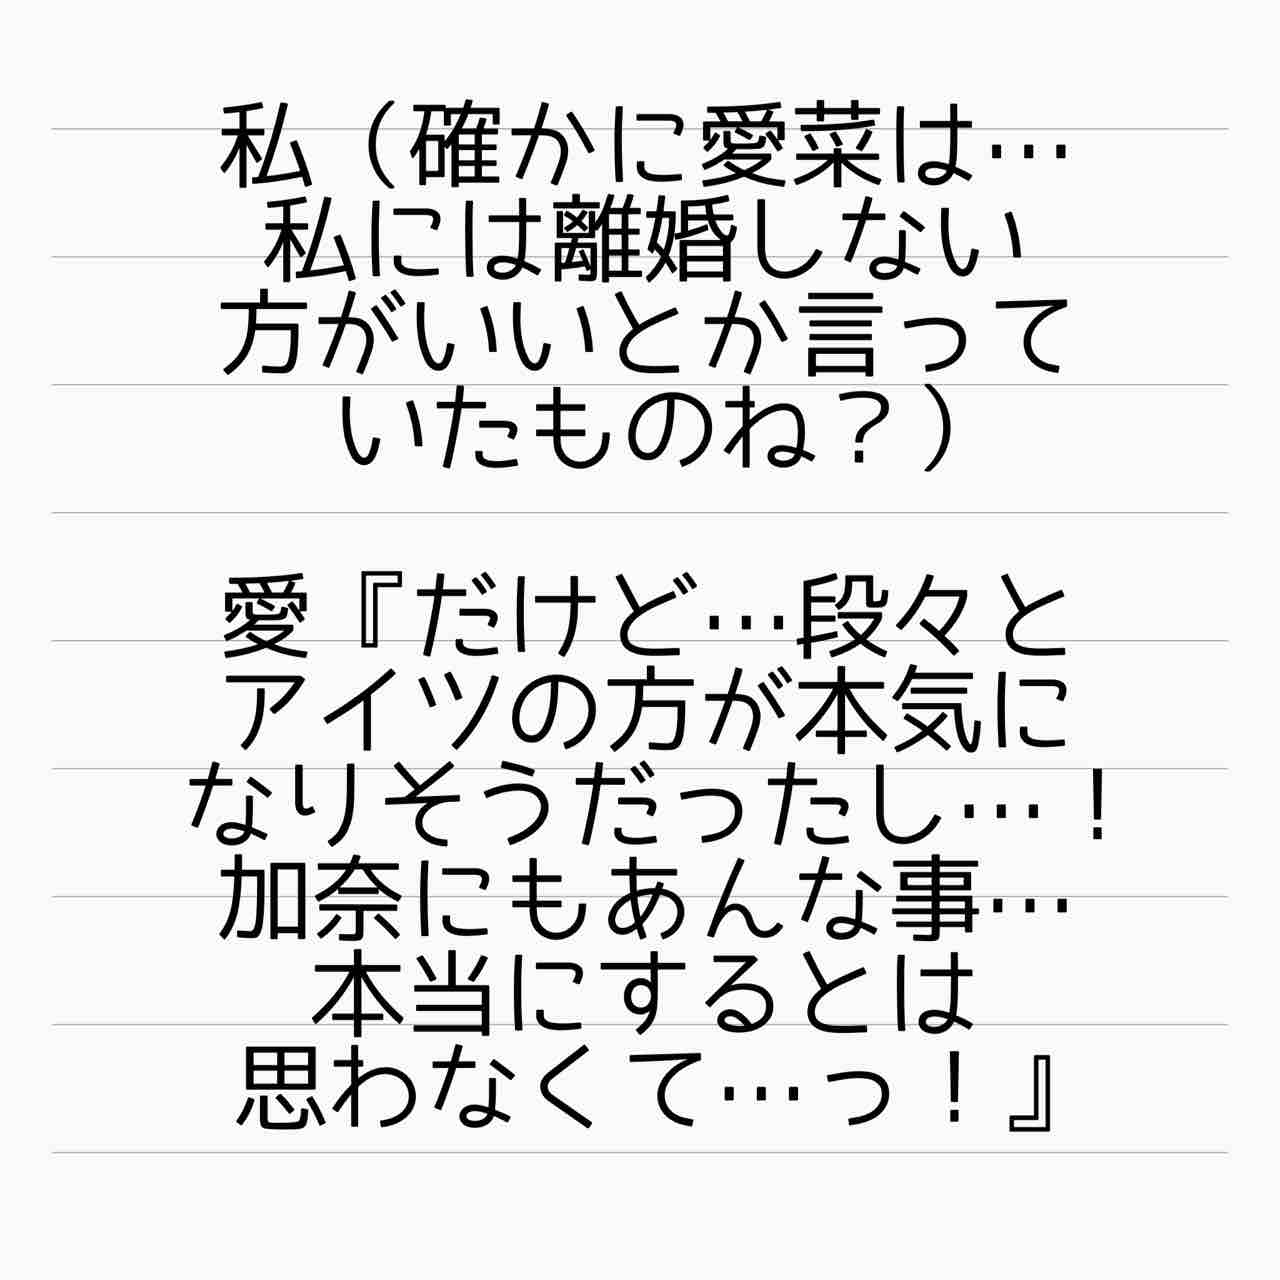 私（確かに愛菜は…
私には離婚しない
方がいいとか言って
いたものね？）
愛『だけど…段々と
アイツの方が本気に
なりそうだったし…！
加奈にもあんな事…
本当にするとは
思わなくて…っ！』